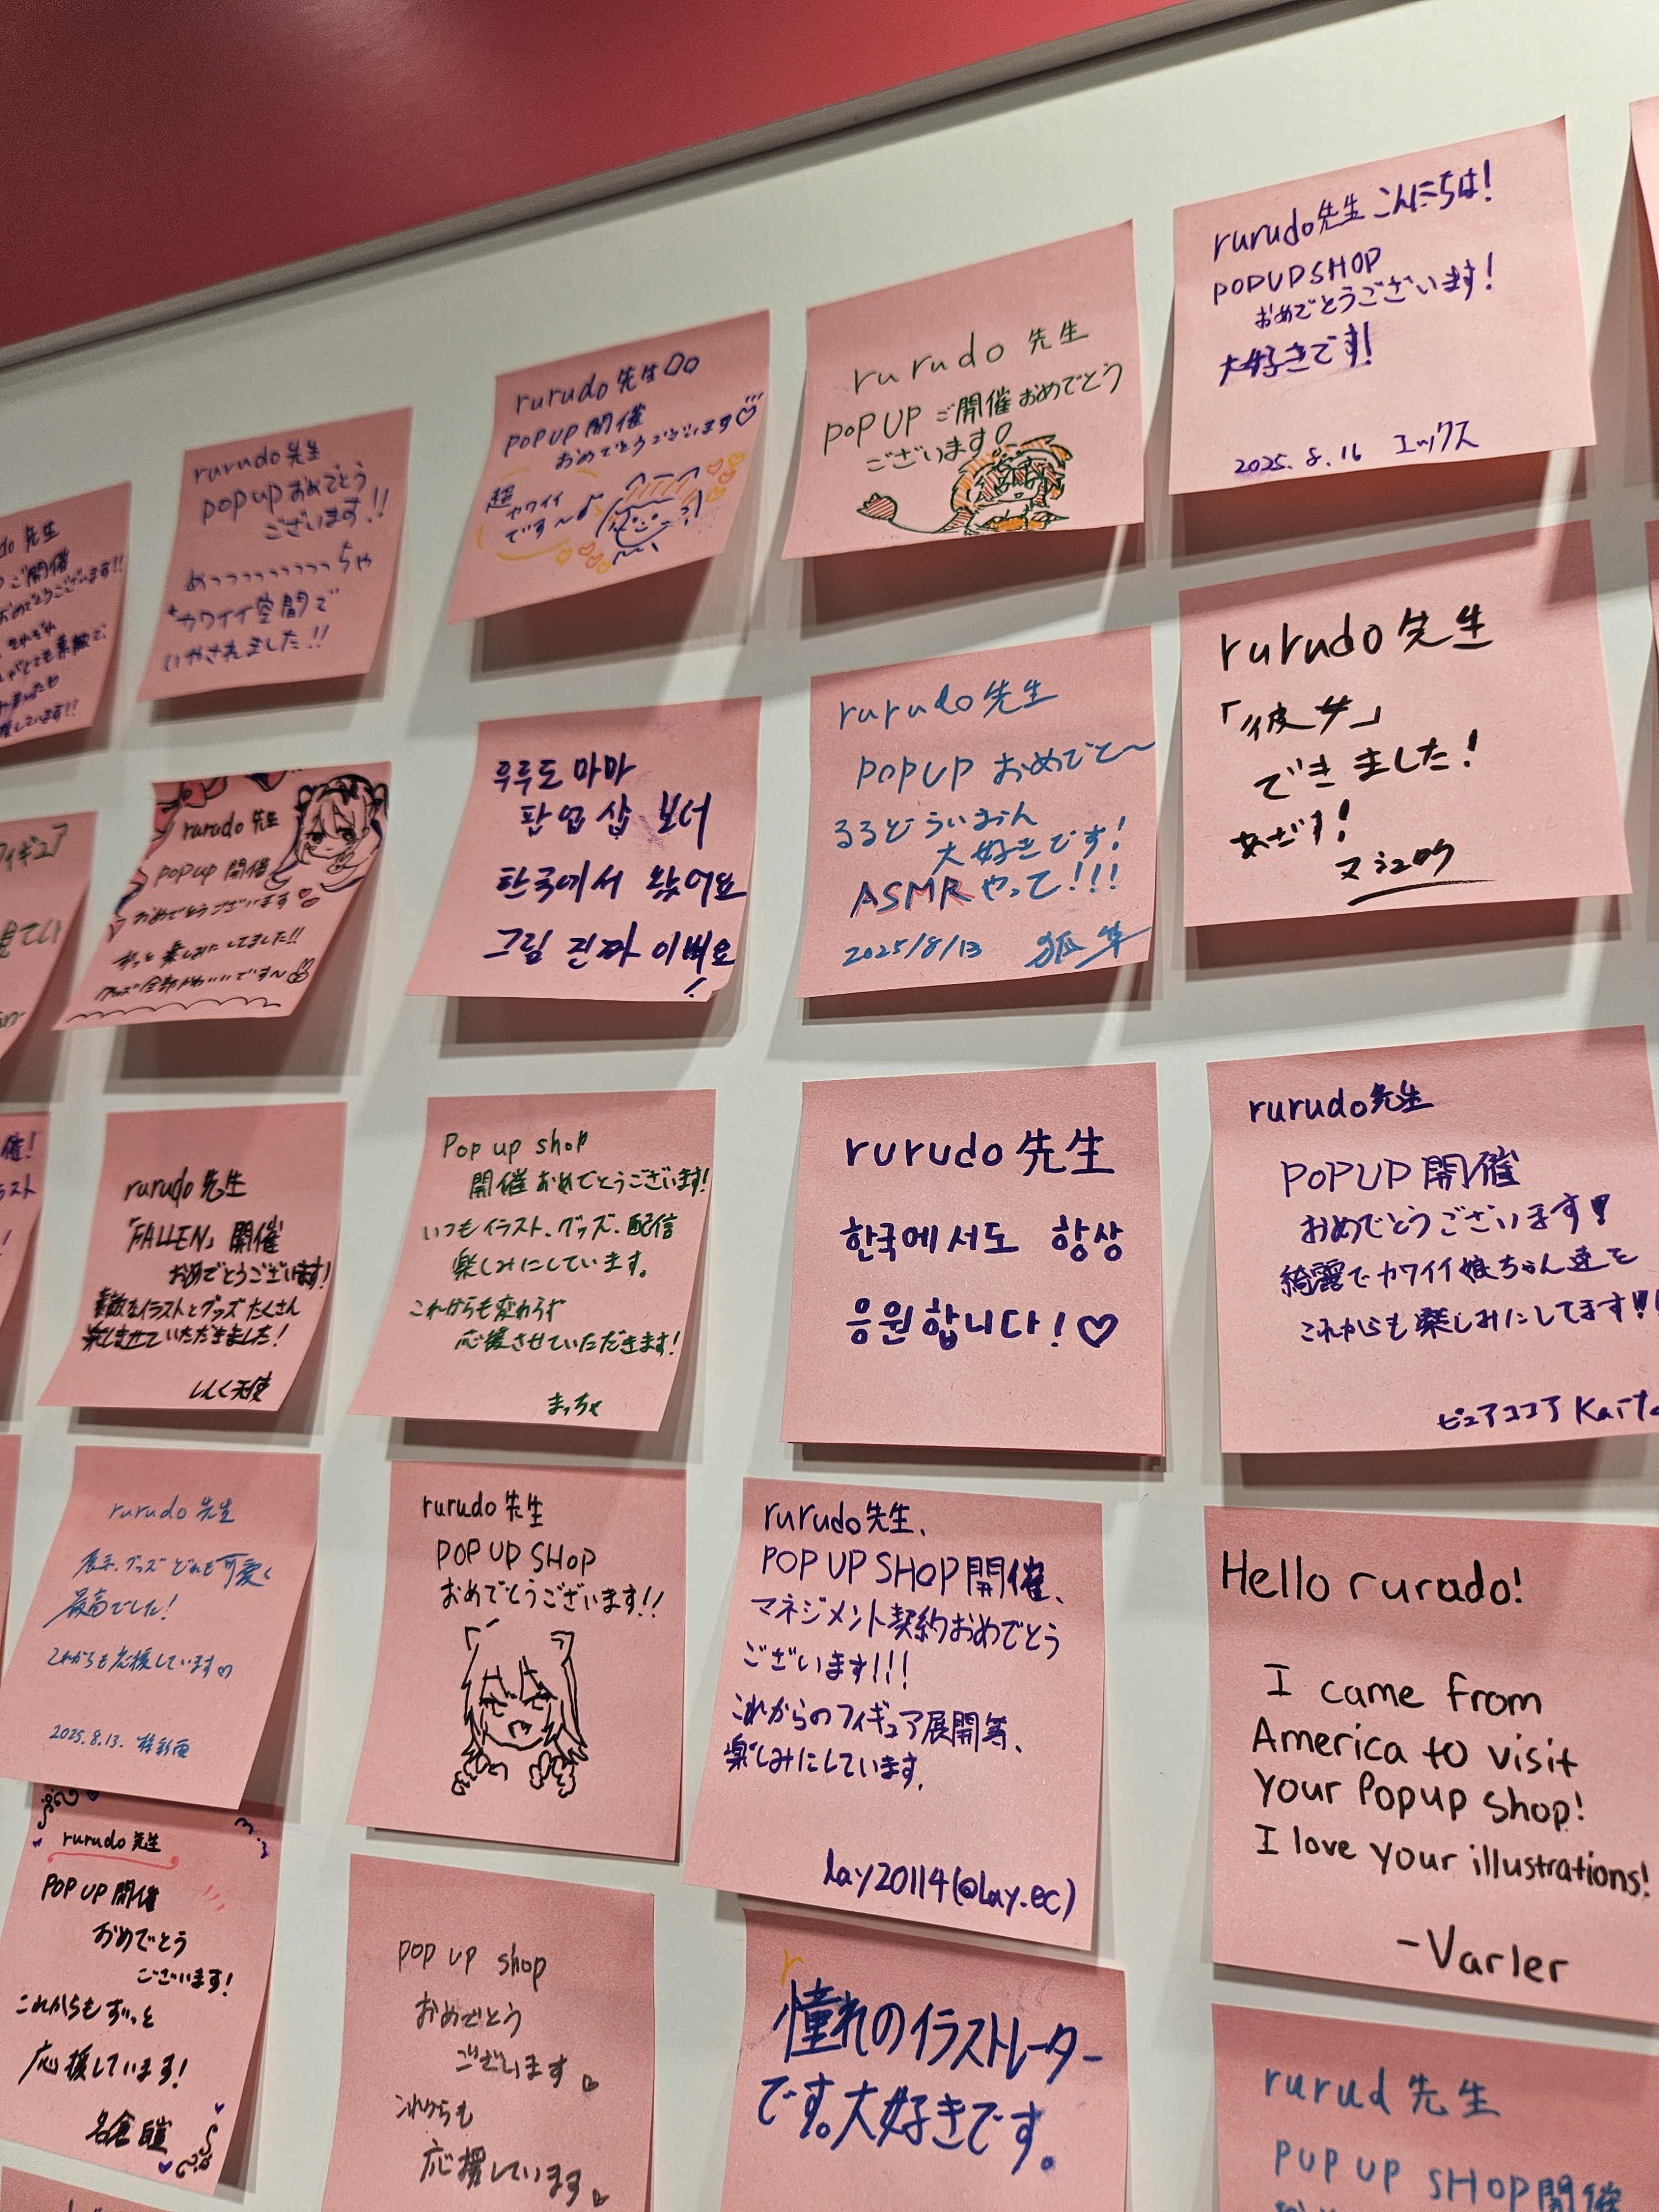 rurudo先生 こんにちは!
POPUPSHOP
おめでとうございます!
大好きです!
2025.8.16 エックス
rurudo 先生
POPUP ご開催おめでとう
ございます
rurudo 先生
POPUP 開催
おめでとうございます♡
超
カワイイ
です〜♪
rurudo 先生
popupおめでとう
ございます!!
めっっっっっっっっっっちゃ
カワイイ空間で
いやされました!!
do 先生
ご開催
おめでとうございます!!
rurudo先生
「彼女」
できました!
あざす!
rurudo先生
POPUP おめでと〜
るるどらいおん
大好きです!
ASMRやって!!!
2025/8/13
루루도 마마
판업샵 보러
한국에서 왔어요
그림 진짜 이뻐요
!
rurudo 先生
popup 開催
おめでとうございます
ずっと楽しみにしてました!!
グッズ全部かわいいです〜
rurudo先生
POPUP 開催
おめでとうございます!
綺麗でカワイイ娘ちゃん達を
これからも楽しみにしてます!!
ピュアココア
rurudo先生
한국에서도 항상
응원합니다!♡
Pop up shop
開催おめでとうございます!
いつもイラスト、グッズ、配信
楽しみにしています。
これからも変わらず
応援させていただきます!
まっちゃ
rurudo 先生
「FALLEN」開催
おめでとうございます!
素敵なイラストとグッズたくさん
楽しませていただきました!
しんく天使
Hello rurudo!
I came from
America to visit
your Popup shop!
I love your illustrations!
-Varler
rurudo先生、
POP UP SHOP開催、
マネジメント契約おめでとう
ございます!!!
これからのフィギュア展開等、
楽しみにしています。
lay20114(@lay.ec)
rurudo 先生
POP UP SHOP
おめでとうございます!!
rurudo 先生
展示、グッズどれも可愛く
最高でした!
これからも応援しています♡
2025.8.13.
rurud 先生
PUPUP SHOP開催
憧れのイラストレーター
です。大好きです。
pop up shop
おめでとう
ございます♡
これからも
応援しています♡
rurudo 先生
POP UP 開催
おめでとう
ございます!
これからもずっと
応援しています!